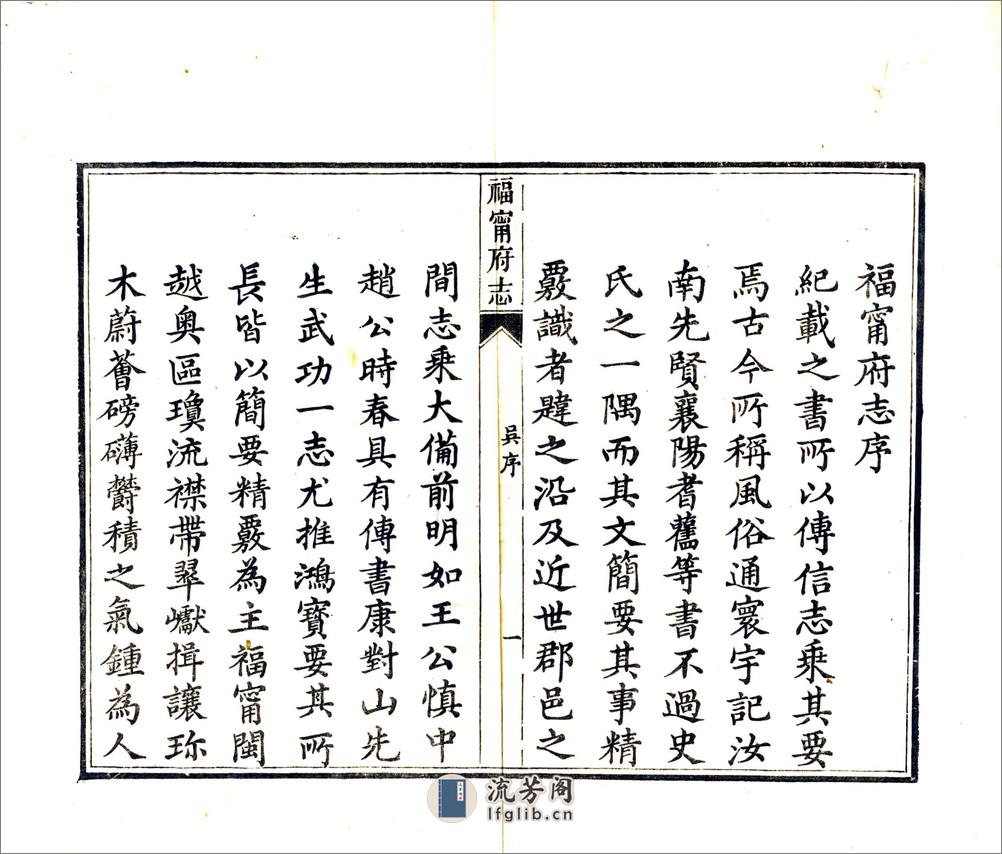 福甯府志序
紀載之書所以傳信志乘其要
焉古今所稱風俗通寰宇記汝
南先賢襄陽耆舊等書不過史
氏之一隅而其文簡要其事精
覈識者韙之沿及近世郡邑之
福甯府志
吳序
一
間志乘大備前明如王公慎中
趙公時春具有傳書康對山先
生武功一志尤推鴻寶要其所
長皆以簡要精覈為主福甯閩
越奧區瓊流襟帶翠巘揖讓珎
木蔚薈磅礴欝積之氣鍾為人
流芳阁
lfglib.cn